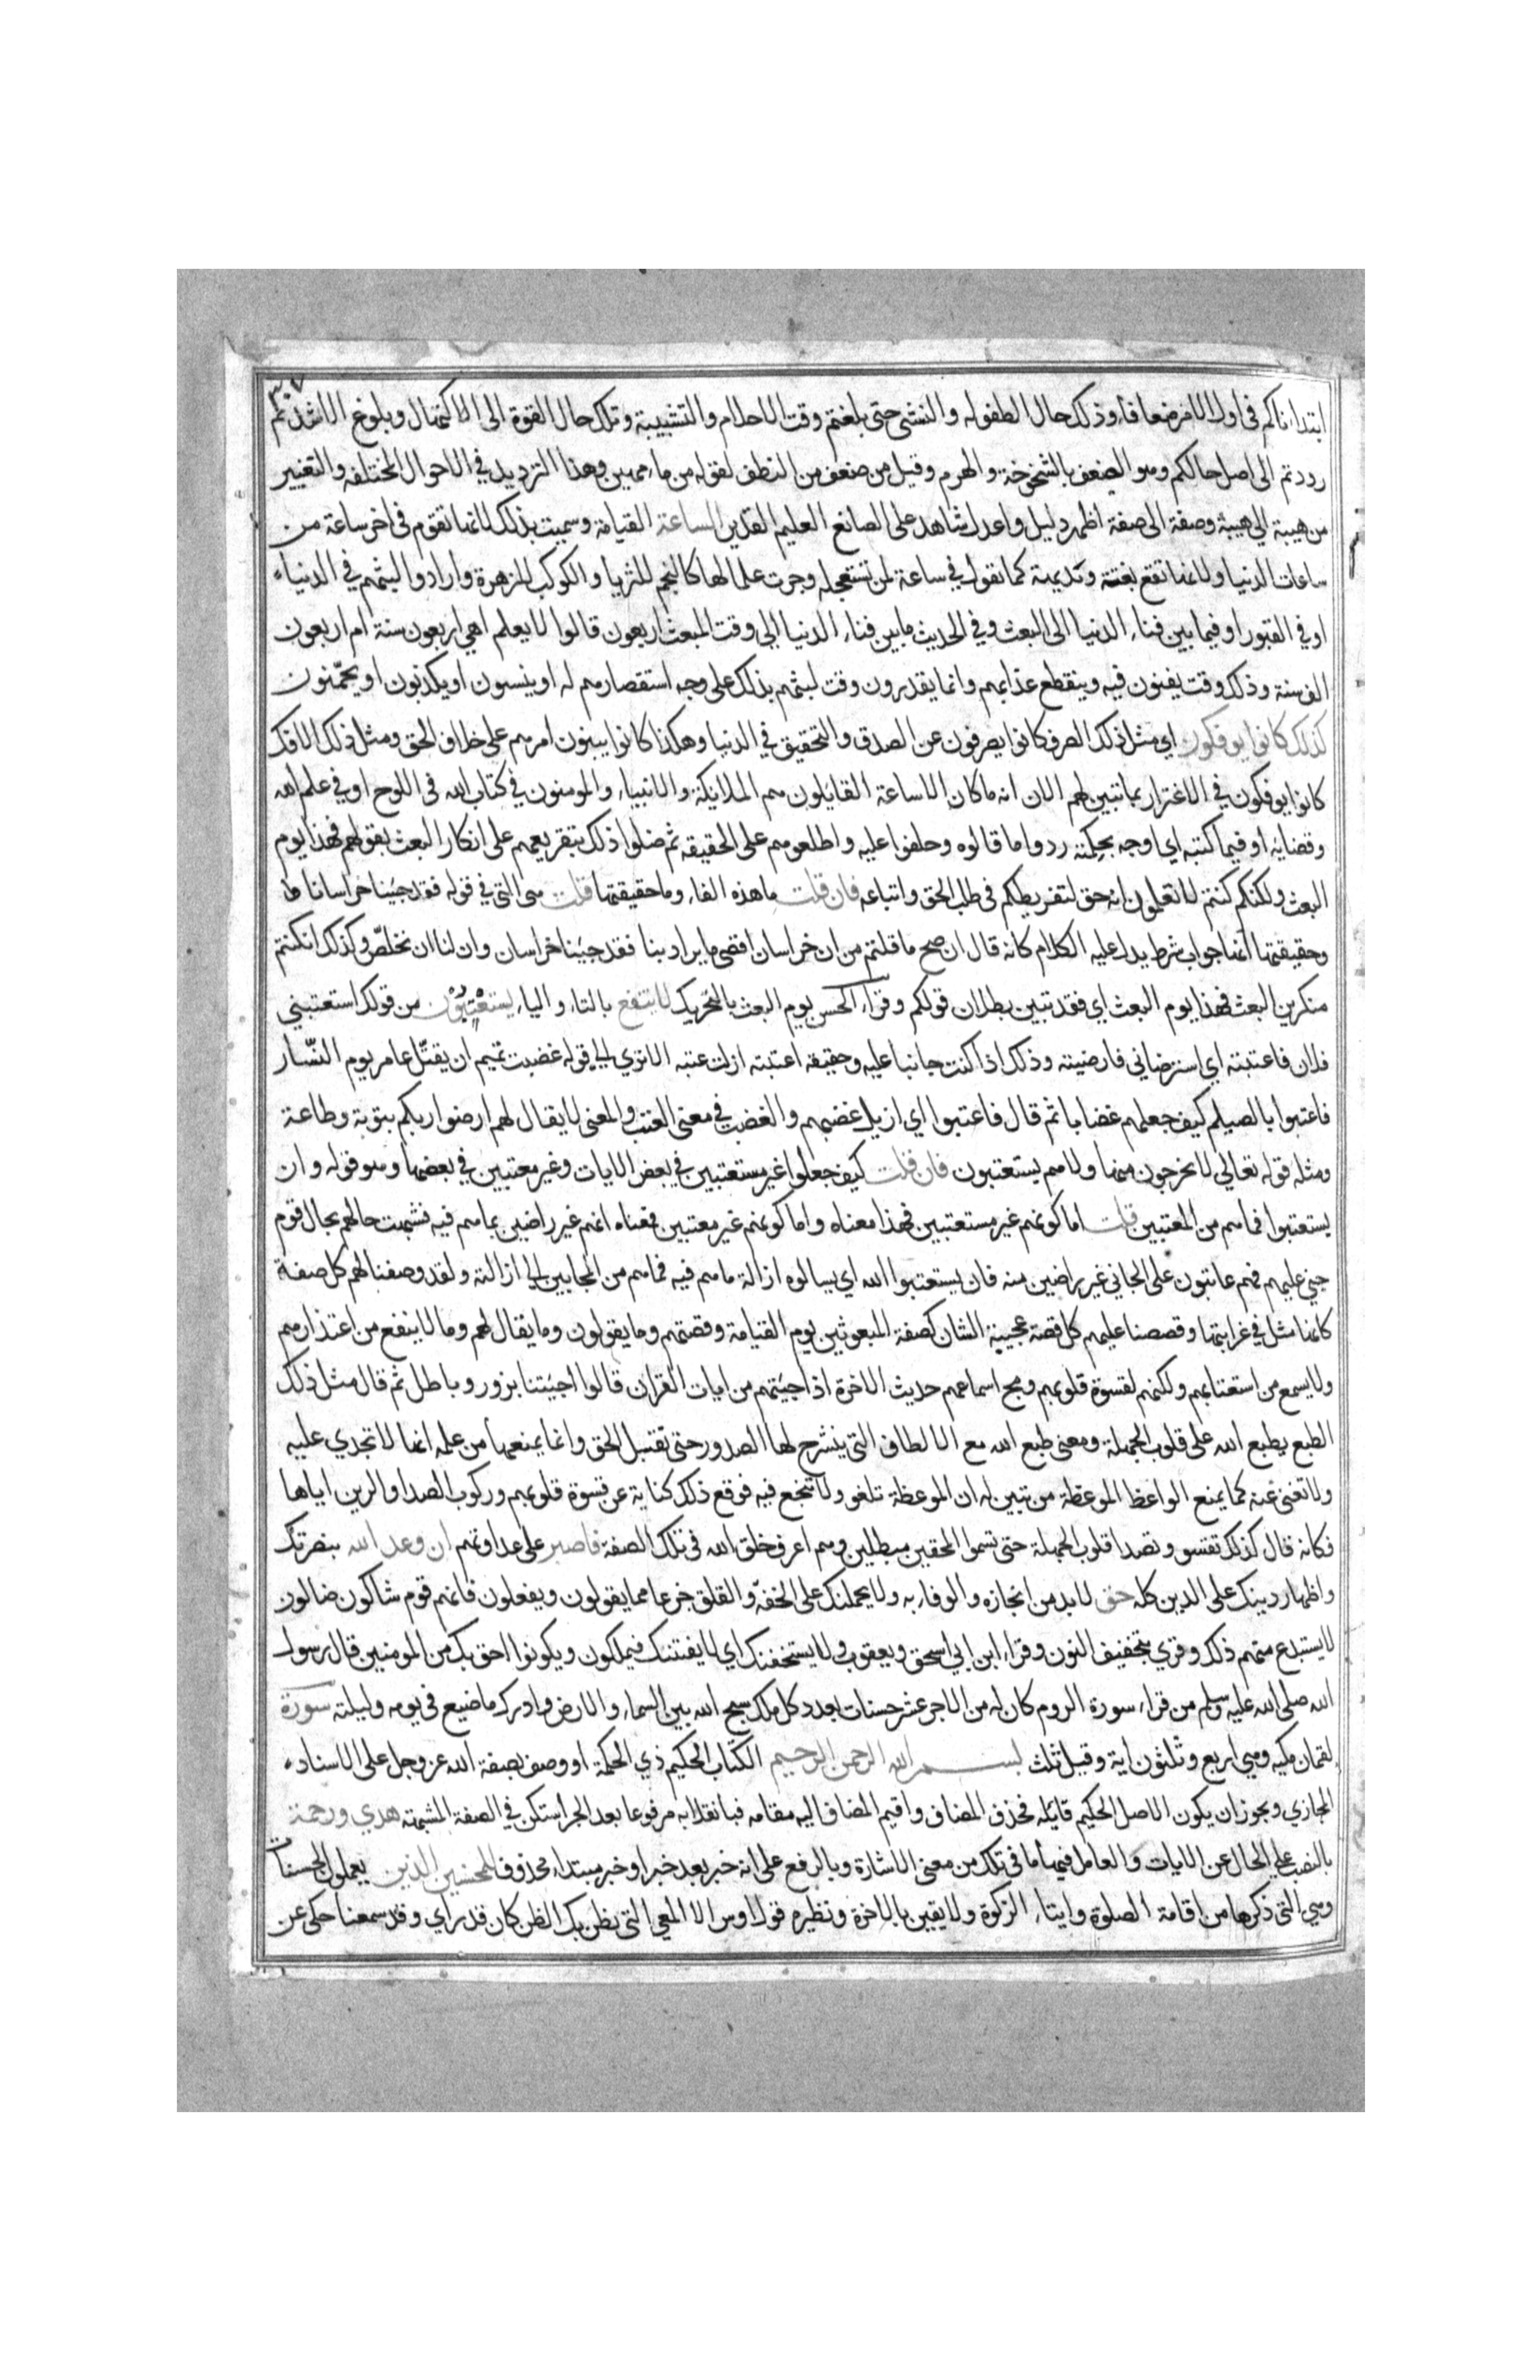 ٣٠٧
ابتداناكم فى اول الامر ضعافا وذلك حال الطفوله والنشئ حتى بلغتم وقت الاحلام والتشبيبة وتلك حال القوة الى الاكتهال وبلوغ الاشد ثم
رددتم الى اصل حالكم وهو الضعف بالشخوخة والهرم وقيل من ضعف من النطف لقوله من ماء مهين وهذا الترديد في الاحوال المختلفه والتغيير
من هيبة الي هيبة وصفة الى صفة اظهر دليل واعدل شاهد على الصانع العليم القدير الساعة القيامة وسميت بذلك لانها تقوم فى اخر ساعة من
ساعات الدنيا ولانها تقع بغتة وبديهة كما تقول في ساعة لمن تستعجله وجرت علما لها كالنجم للثريا والكوكب للزهرة وارادوا لبثهم في الدنياء
او في القبور او فيما بين فناء الدنيا الى البعث وفي الحديث مابين فناء الدنيا الي وقت المبعث اربعون قالوا لا يعلم اهي اربعون سنة ام اربعون
الف سنة وذلك وقت يفنون فيه وينقطع عذابهم وانما يقدرون وقت لبثهم بذلك على وجه استقصارهم له او ينسون او يكذبون او يخمّنون
كذلك كانوا يوفكون اي مثل ذلك الصرف كانوا يصرفون عن الصدق والتحقيق في الدنيا وهكذا كانوا يبنون امرهم على خلاف الحق ومثل ذلك الافك
كانوا يوفكون في الاغترار بما تبين لهم الان انه ما كان الا ساعة القايلون هم الملائكة والانبياء والمومنون في كتاب الله فى اللوح او في علم الله
وقضايه او فيما كتبه اي اوجه بحكمته ردوا ما قالوه وحلفوا عليه واطلعوهم على الحقيقه ثم ضلوا ذلك بتقريعهم على انكار البعث بقولهم فهذا يوم
البعث ولكنكم كنتم لا تعلمون انه حق لتفريطكم فى طلب الحق واتباعه فان قلت ما هذه الفاء وما حقيقتها قلت هى التى في قوله فقد جئنا خراسانا
وحقيقتها انها جواب شرط يدل عليه الكلام كانه قال ان صح ما قلتم من ان خراسان اقصى ما يراد بنا فقد جئنا خراسان وان لنا ان نخلصّ وكذلك ان كنتم
منكرين البعث فهذا يوم البعث اي فقد تبين بطلان قولكم وقراء الحسن يوم البعث بالتحريك لا ينفع بالتاء والياء يستعتبون من قولك استعتبني
فلان فاعتبته اي استرضاني فارضيته وذلك اذا كنت جانيا عليه وحقيقه اعتبته ازلت عتبه الا ترى الي قوله غضبت تميم ان يقتّل عامر يوم النّسار
فاعتبوا بالصيلم كيف جعلهم غضابا ثم قال فاعتبوا اي ازيل غضبهم والغضب في معنى العتب والمعنى لا يقال لهم ارضوا ربكم بتوبة وطاعة
ومثله قوله تعالي لا يخرجون منها ولا هم يستعتبون فان قلت كيف جعلوا غير مستعتبين في بعض الايات وغير معتبين في بعضها وهو قوله وان
يستعتبوا فما هم من المعتبين قلت اما كونهم غير مستعتبين فهذا معناه واما كونهم غير معتبين فمعناه انهم غير راضين بما هم فيه فشبهت حالهم بحال قوم
جني عليهم فهم عاتبون على الجاني غير راضين منه فان يستعتبوا الله اي يسالوه ازالة ما هم فيه فما هم من المجابين الي ازالته ولقد وصفنا لهم كل صفة
كانها مثل في غرابتها وقصصنا عليهم كل قصة عجيبة الشان كصفة المبعوثين يوم القيامة وقصتهم وما يقولون وما يقال لهم وما لا ينفع من اعتذارهم
ولا يسمع من استعتابهم ولكنهم لقسوة قلوبهم ومج اسماعهم حديث الاخرة اذا جئتهم من ايات القران قالوا اجئتنا بزور وباطل ثم قال مثل ذلك
الطبع يطبع الله على قلوب الجهلة ومعنى طبع الله مع الالطاف التى ينشرح لها الصدور حتى تقبل الحق وانما يمنعها من علم انها لا تجدي عليه
ولا تغنى عنه كما يمنع الواعظ الموعظة من تبين له ان الموعظة تلغو ولا تنجع فيه فوقع ذلك كناية عن قسوة قلوبهم وركوب الصدا والرين اياها
فكانه قال كذلك تقسو وتصدا قلوب الجهلة حتى تسموا المحقين مبطلين وهم اعرف خلق الله فى تلك الصفة فاصبر على عداوتهم ان وعد الله بنصرتك
واظهار دينك على الدين كله حق لا بد من انجازه والوفاء به ولا يحملنك على الخفة والقلق جزعا مما يقولون ويفعلون فانهم قوم شاكون ضالون
لا يستبدع منهم ذلك وقري بتخفيف النون وقراء ابن ابي اسحق ويعقوب ولا يستحقنك اي لا يفتننك فيملكون ويكونوا احق بك من المومنين قال رسول
الله صلى الله عليه وسلم من قراء سورة الروم كان له من الاجر عشر حسنات بعدد كل ملك سبح الله بين السماء والارض وادرك ما ضيع فى يومه وليلته سورة
لقمان مكيه وهي اربع وثلثون اية وقيل ثلث بسم الله الرحمن الرحيم الكتاب الحكيم ذي الحكمة او وصف بصفة الله عز وجل على الاسناد
المجازي ويجوز ان يكون الاصل الحكيم قايله فحذف المضاف واقيم المضاف اليه مقامه فبانقلابه مرفوعا بعد الجر استكن في الصفة المشبهة هدي ورحمة
بالنصب على الحال عن الايات والعامل فيها ما فى تلك من معنى الاشارة وبالرفع على انه خبر بعد خبر او خبر مبتداء محذوف للمحسنين الذين يعملون الحسنات
وهي التى ذكرها من اقامة الصلوة وايتاء الزكوة ولا يقين بالاخرة ونظيره قول اوس الالمعي التى يظن بك الظن كان قد راي وقد سمعنا حكى عن